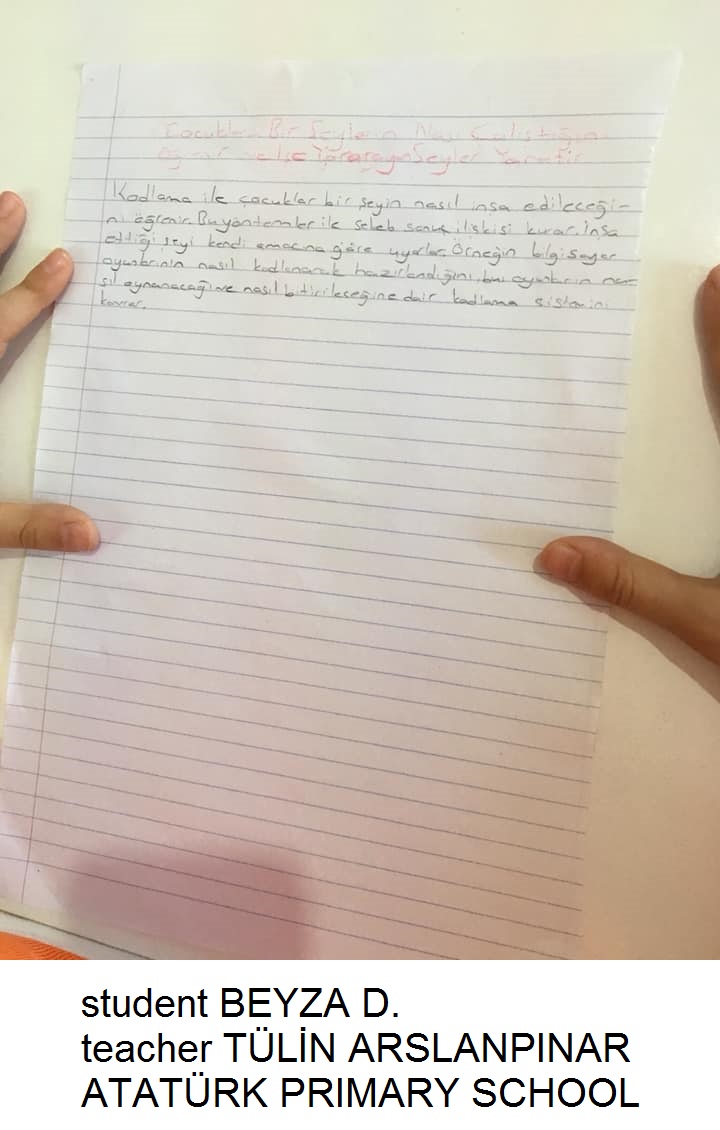 Çocuklar Bir Şeylerin Nasıl Çalıştığını
Öğrenir ve İşe Yarayan Şeyler Yaratır
Kodlama ile çocuklar bir şeyin nasıl inşa edileceği-
ni öğrenir. Bu yöntemler ile sebeb sonuç ilişkisi kurar. İnşa
ettiği şeyi kendi amacına göre uyarlar. Örneğin bilgisayar
oyunlarının nasıl kodlanarak hazırlandığını, bu oyunların na-
sıl oynanacağı ve nasıl bitirileceğine dair kodlama sistemini
kavrar.
student BEYZA D.
teacher TÜLİN ARSLANPINAR
ATATÜRK PRIMARY SCHOOL